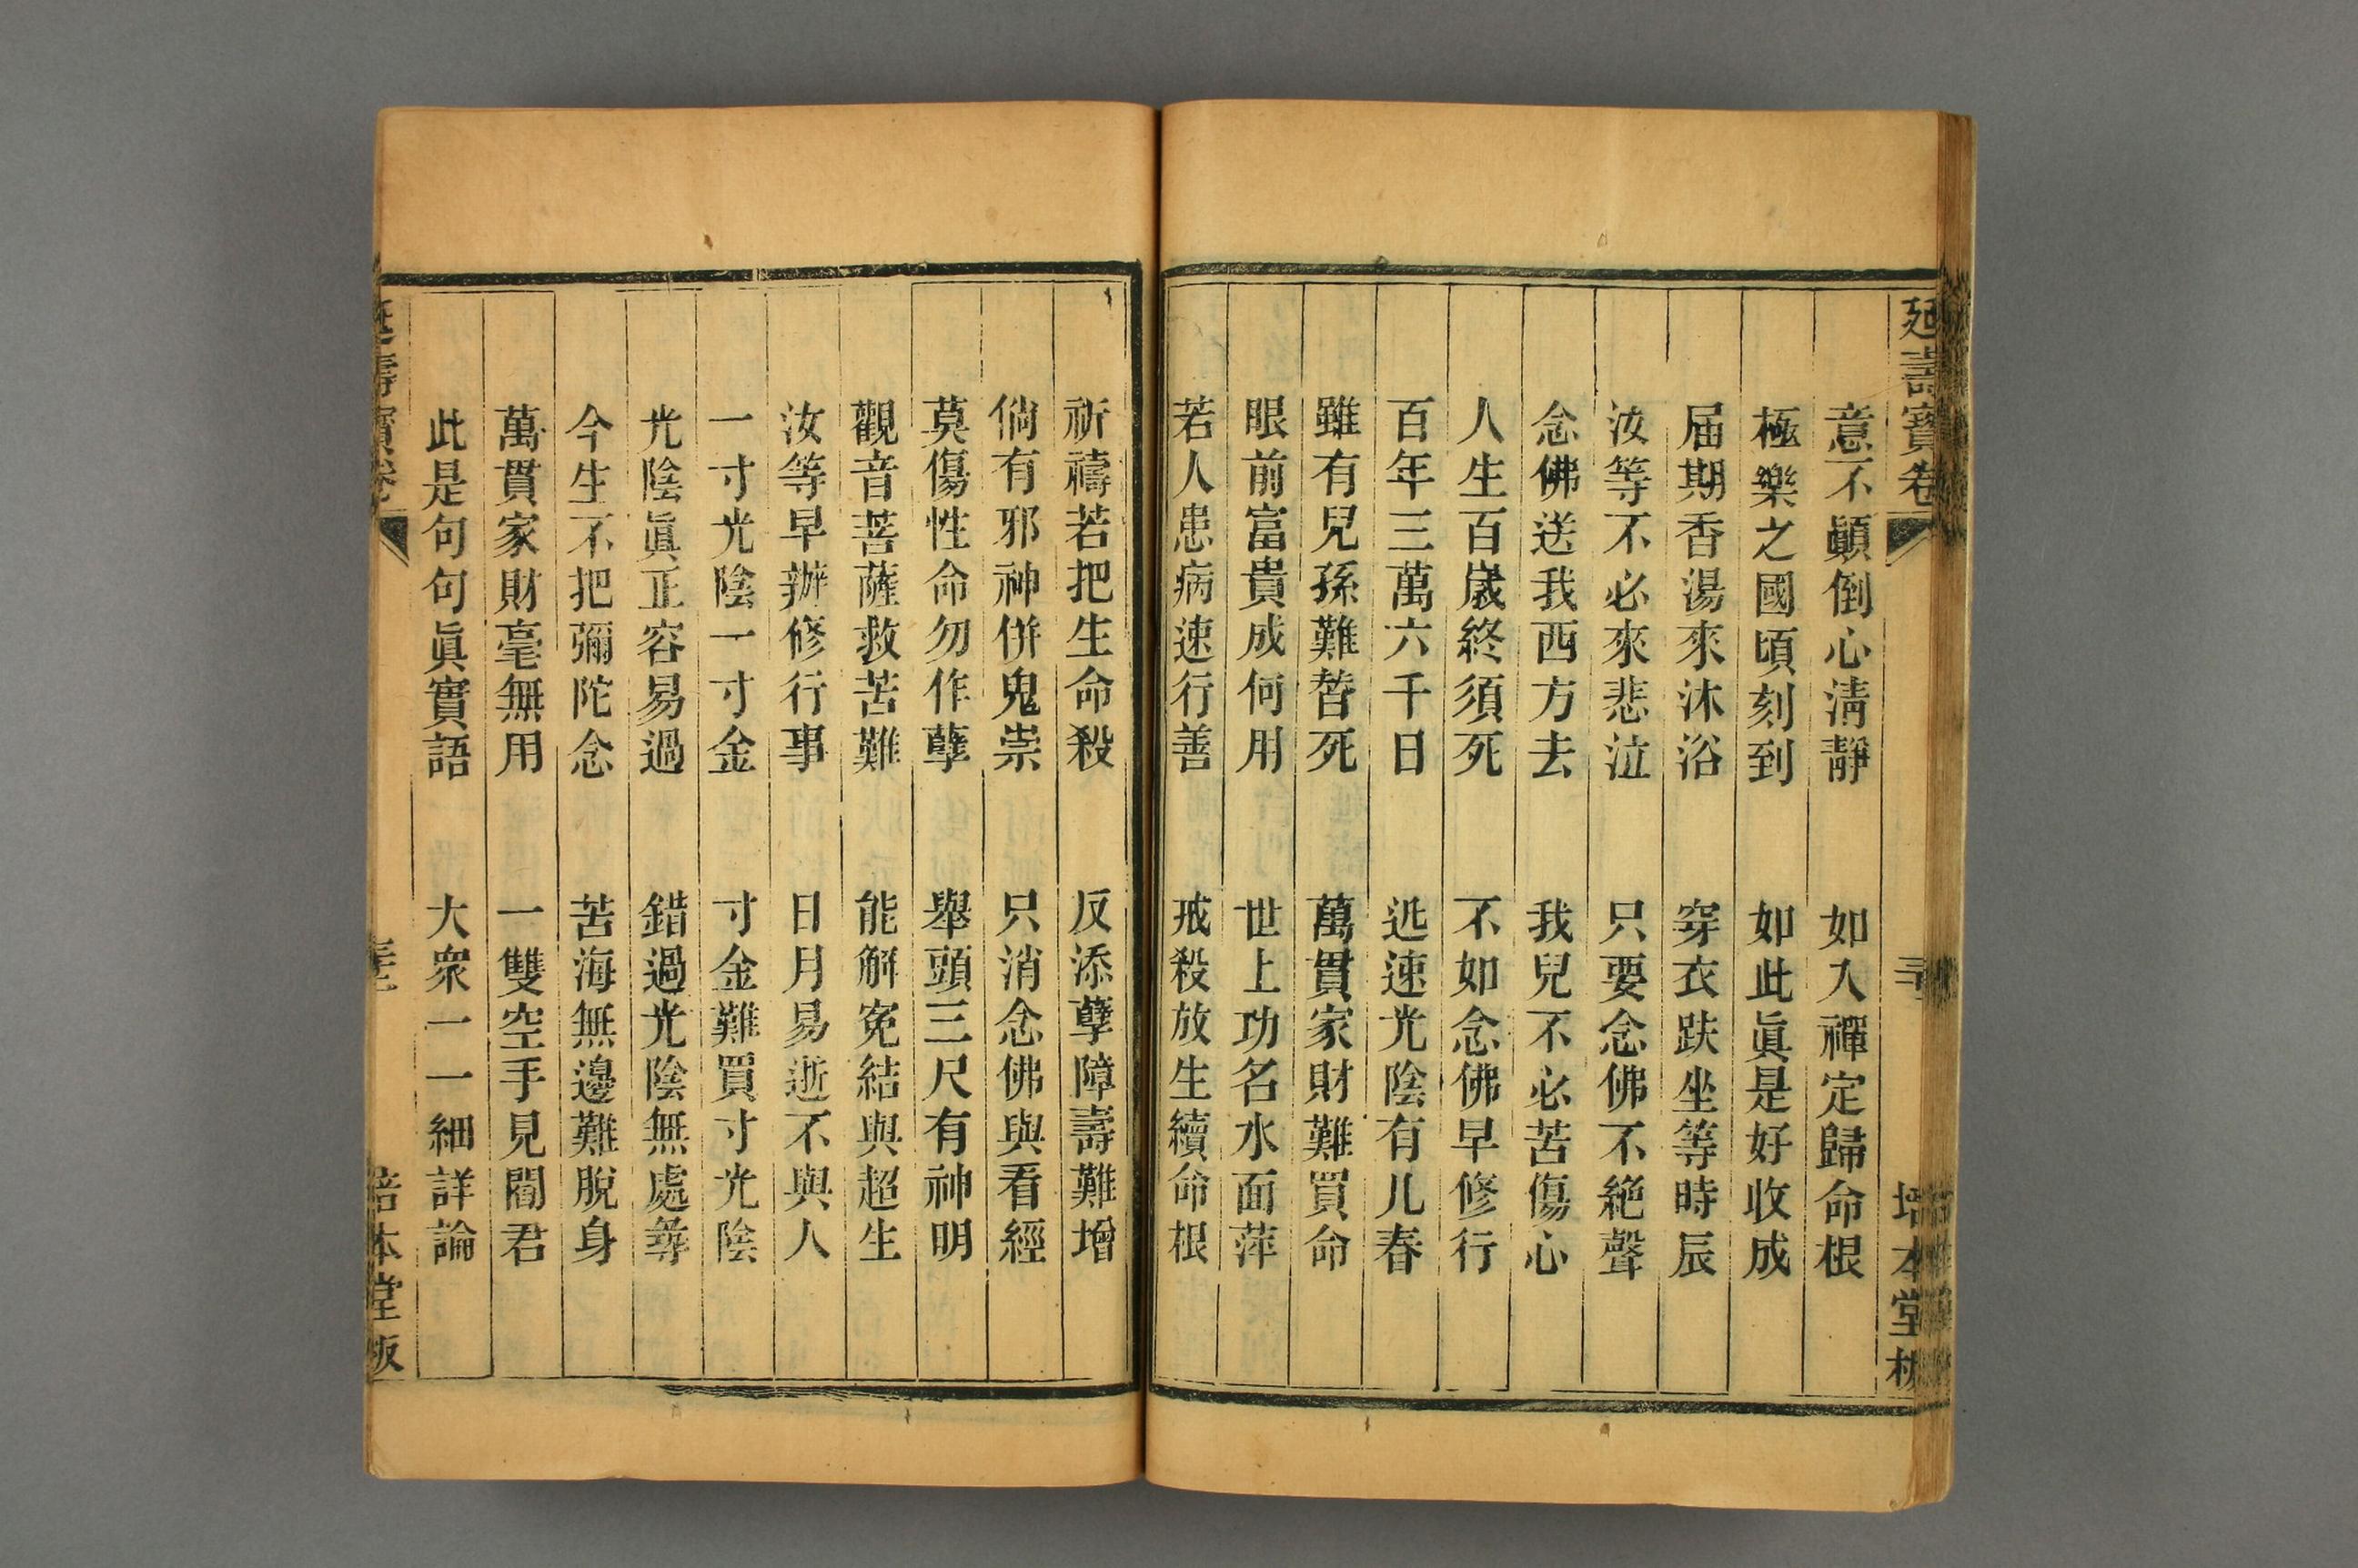 延壽寶卷 培本堂
意不顚倒心淸靜 如入禪定歸命根
極樂之國頃刻到 如此眞是好收成
届期香湯來沐浴 穿衣趺坐等時辰
汝等不必來悲泣 只要念佛不絶聲
念佛送我西方去 我兒不必苦傷心
人生百歲終須死 不如念佛早修行
百年三萬六千日 迯速光陰有几春
雖有兒孫難替死 萬貫家財難買命
眼前富貴成何用 世上功名水面萍
若人患病速行善 戒殺放生續命根
祈禱若把生命殺 反添孽障壽難增
倘有邪神併鬼祟 只消念佛與看經
莫傷性命勿作孽 舉頭三尺有神明
觀音菩薩救苦難 能解寃結與超生
汝等早辦修行事 日月易逝不與人
一寸光陰一寸金 寸金難買寸光陰
光陰眞正容易過 錯過光陰無處尋
今生不把彌陀念 苦海無邊難脫身
萬貫家財毫無用 一雙空手見閻君
此是句句眞實語 大衆一一細詳論
延壽寶卷 培本堂板